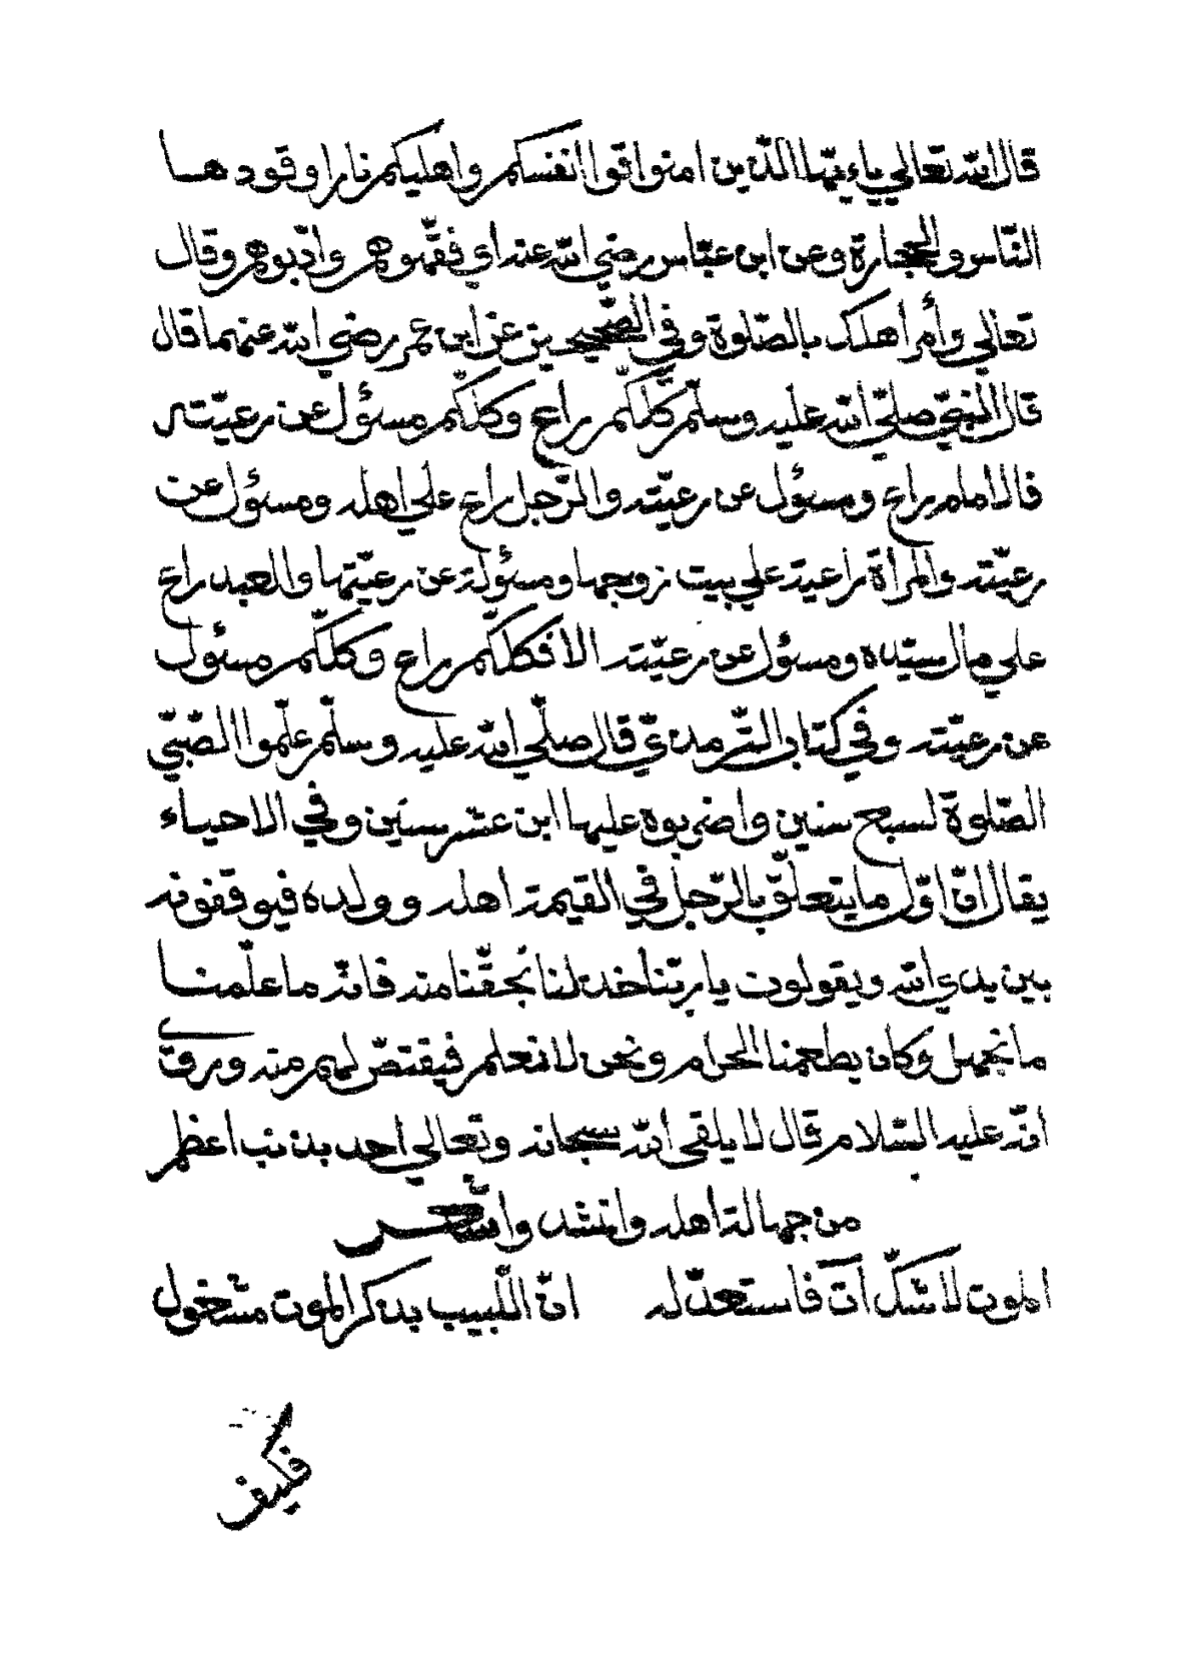 قال الله تعالي ياءيّها الّذين امنوا قوا انفسكم واهليكم نارا وقودها
النّاس والحجارة وعن ابن عبّاس رضي الله عنه اي فقّهوهم وادّبوهم وقال
تعالي وأمر أهلك بالصّلوة وفي الصّحيحين عن ابن عمر رضي الله عنهما قال
قال النبيّ صلّي الله عليه وسلّم كلّكم راع وكلّكم مسؤل عن رعيّته
فالامام راع ومسؤل عن رعيّته والرّجل راع علي اهله ومسؤل عن
رعيّته والمرأة راعية علي بيت زوجها ومسؤلة عن رعيّتها والعبد راع
علي مال سيّده ومسؤل عن رعيّته الا فكلّكم راع وكلّكم مسؤل
عن رعيّته وفي كتاب التّرمذيّ قال صلّي الله عليه وسلّم علّموا الصّبيّ
الصّلوة لسبع سنين واضربوه عليها ابن عشر سنين وفي الاحياء
يقال انّ اوّل ما يتعلّق بالرّجل في القيمة اهله وولده فيوقفونه
بين يدي الله ويقولون يا ربّنا خذ لنا بحقّنا منه فانّه ما علّمنا
ما نجهل وكان يطعمنا الحرام ونحن لا نعلم فيقتصّ لهم منه وروي
انّه عليه السّلام قال لا يلقي الله سبحانه وتعالي احد بذنب اعظم
من جهالة اهله وانشد
الموت لا شكّ آت فاستعدّ له انّ اللّبيب بذكر الموت مشغول
فكيف